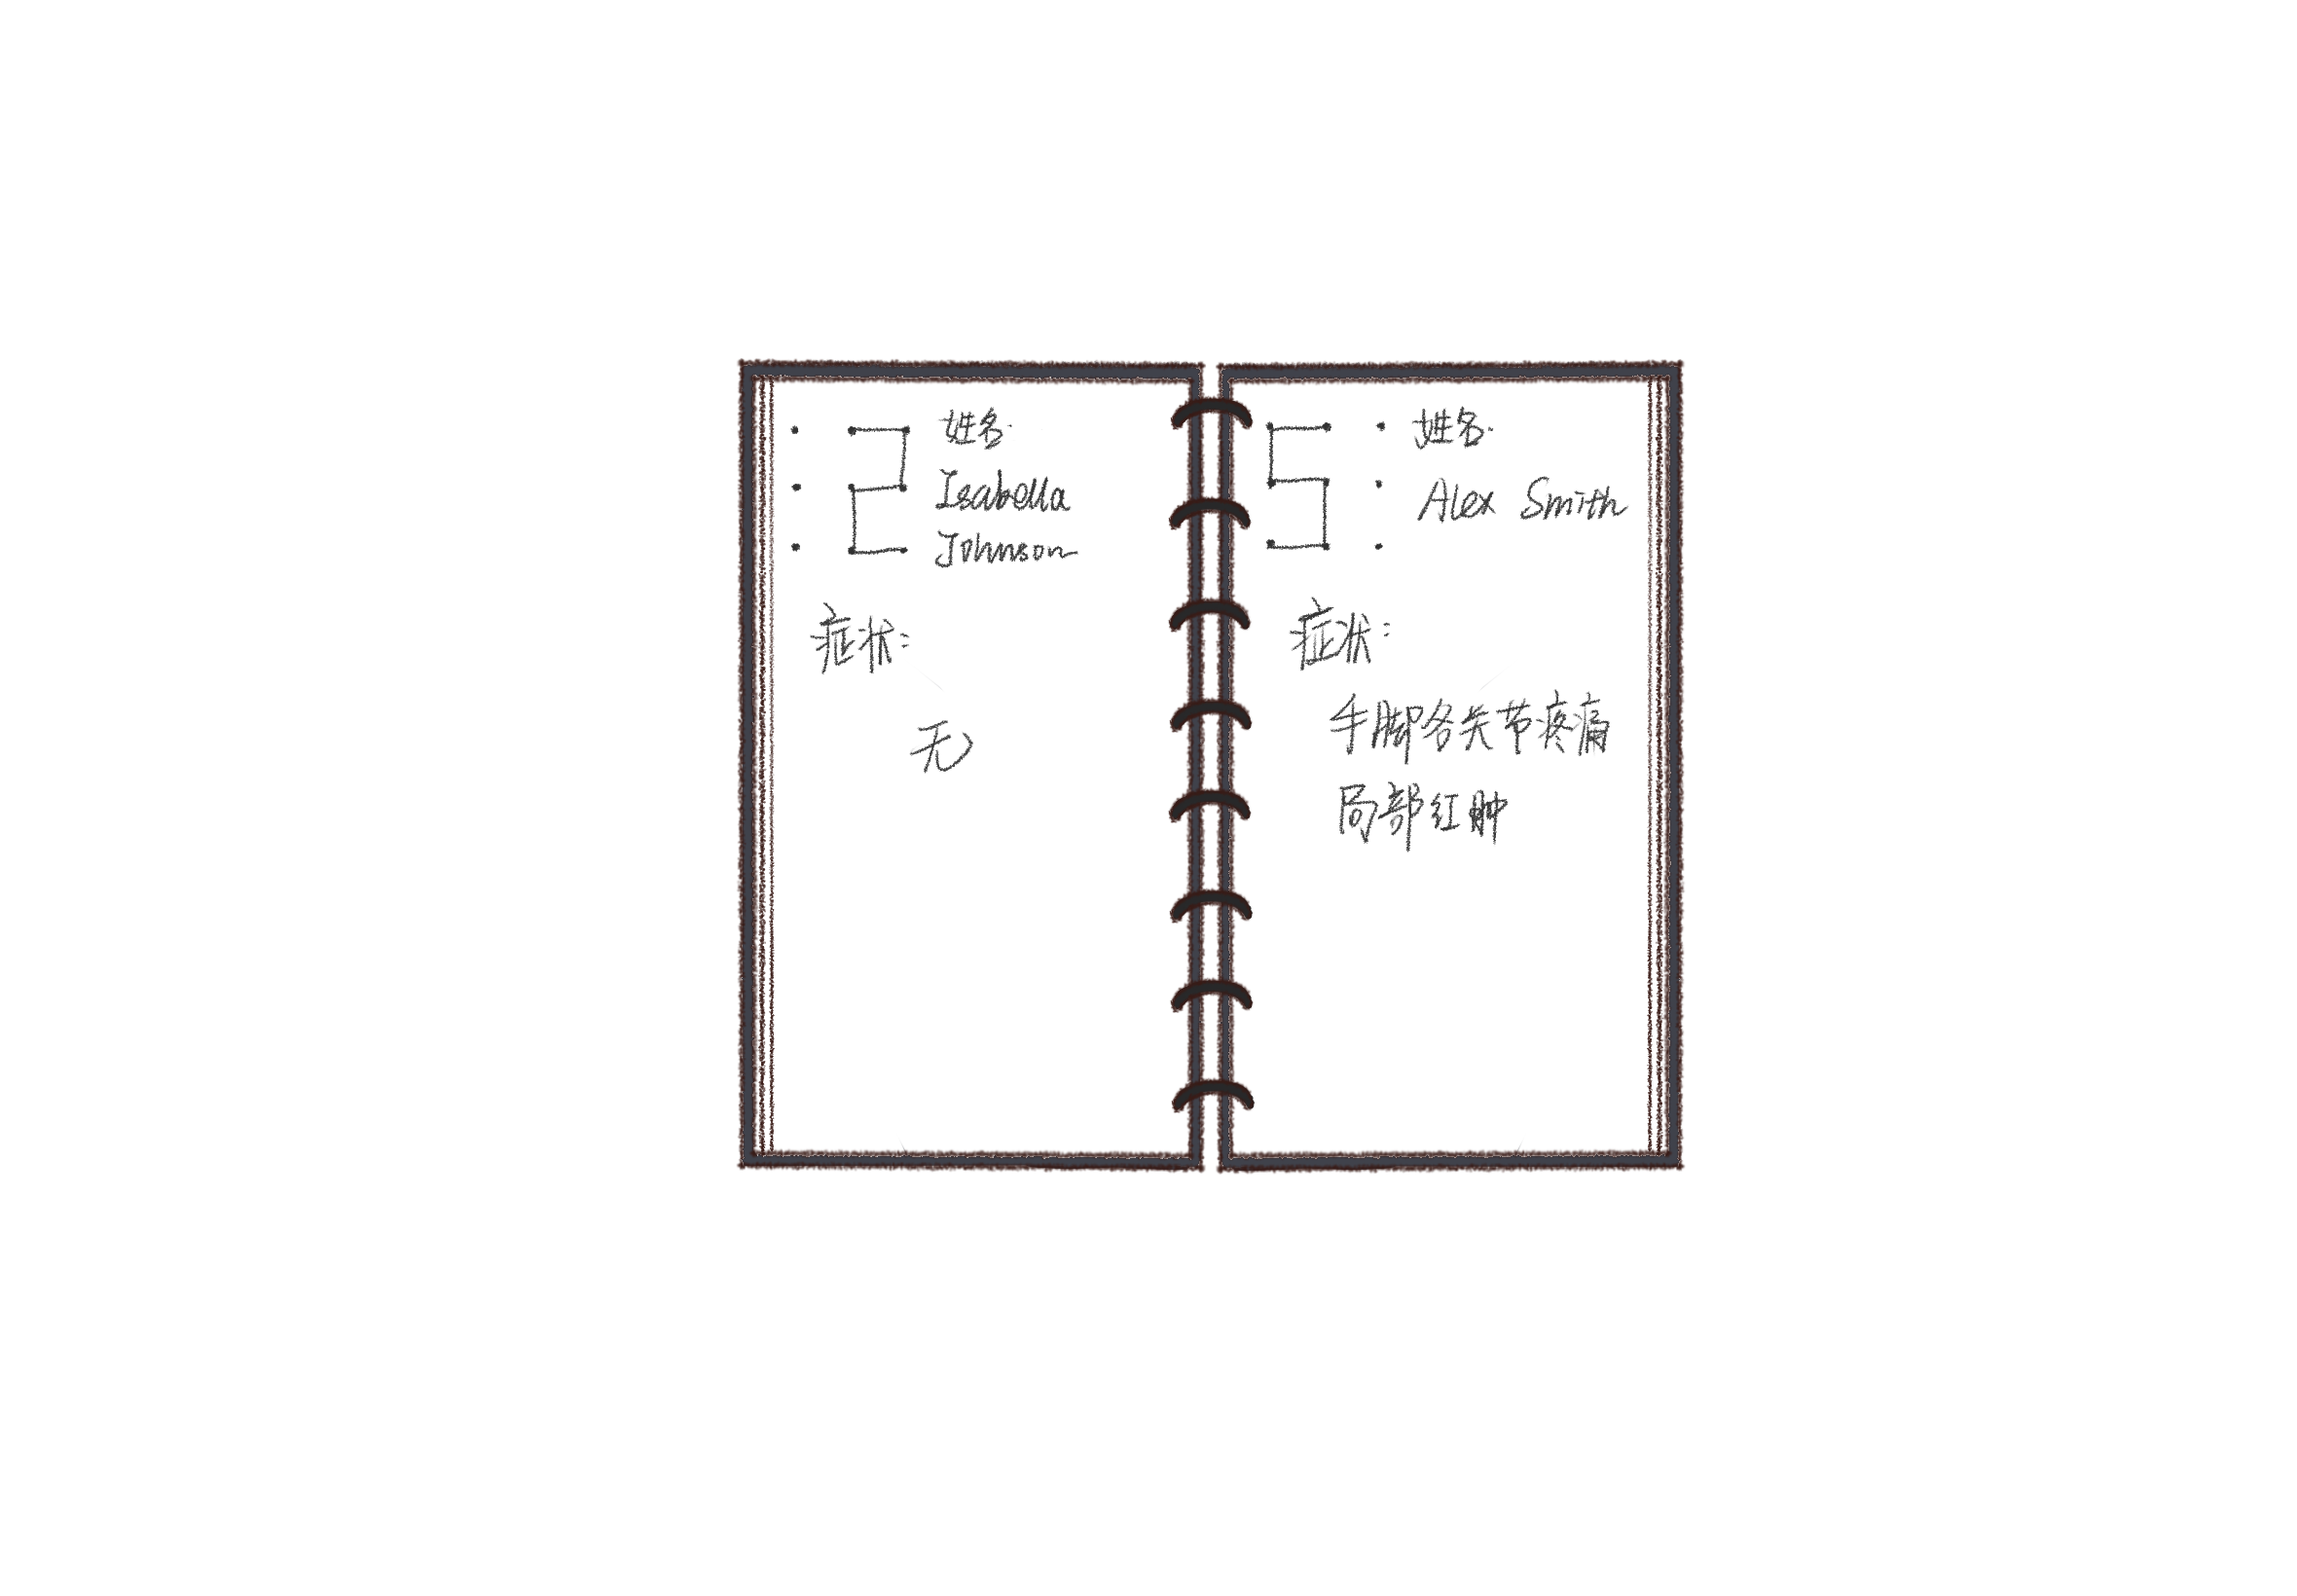 姓名:
Isabella
Johnson
症状:
无
姓名:
Alex Smith
症状:
手脚各关节疼痛
局部红肿